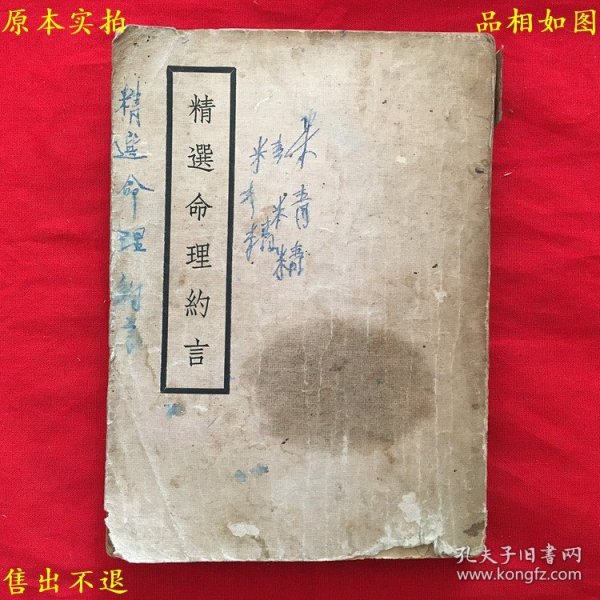 原本实拍
品相如图
精選命理約言
精選命理約言
售出不退
孔夫子旧书网
www.kongfz.com